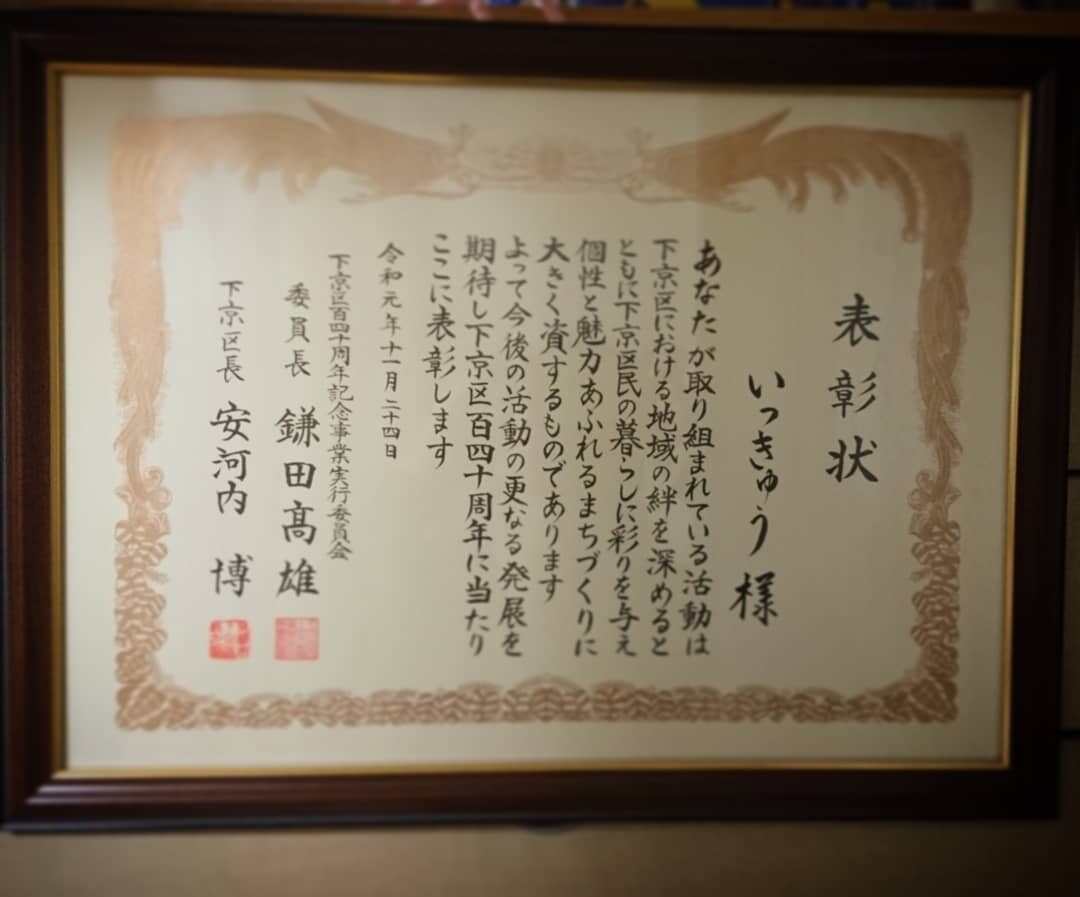 表彰状
いっきゅう 様
あなたが取り組まれている活動は
下京区における地域の絆を深めると
ともに下京区民の暮らしに彩りを与え
個性と魅力あふれるまちづくりに
大きく資するものであります
よって今後の活動の更なる発展を
期待し下京区百四十周年に当たり
ここに表彰します
令和元年十一月二十四日
下京区百四十周年記念事業実行委員会
委員長 鎌田髙雄
下京区長 安河内 博